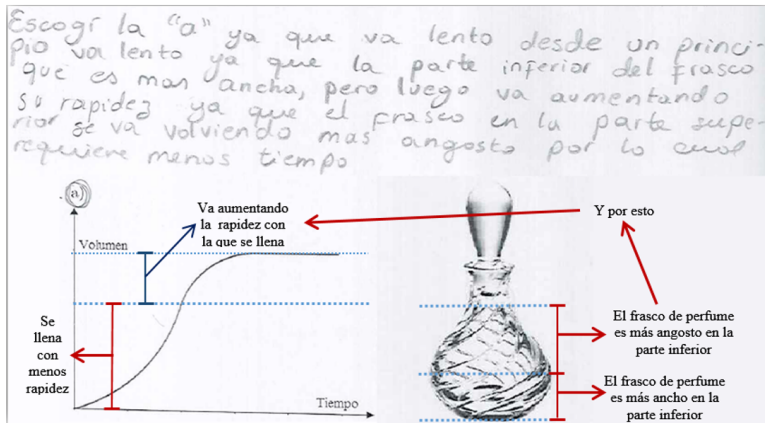 Escogí la "a" ya que va lento desde un princi-
pio va lento ya que la parte inferior del frasco
que es mas ancha, pero luego va aumentando
su rapidez ya que el frasco en la parte supe-
rior se va volviendo mas angosto por lo cual
requiere menos tiempo
a)
Volumen
Tiempo
Va aumentando
la rapidez con
la que se llena
Se
llena
con
menos
rapidez
Y por esto
El frasco de perfume
es más angosto en la
parte inferior
El frasco de perfume
es más ancho en la
parte inferior